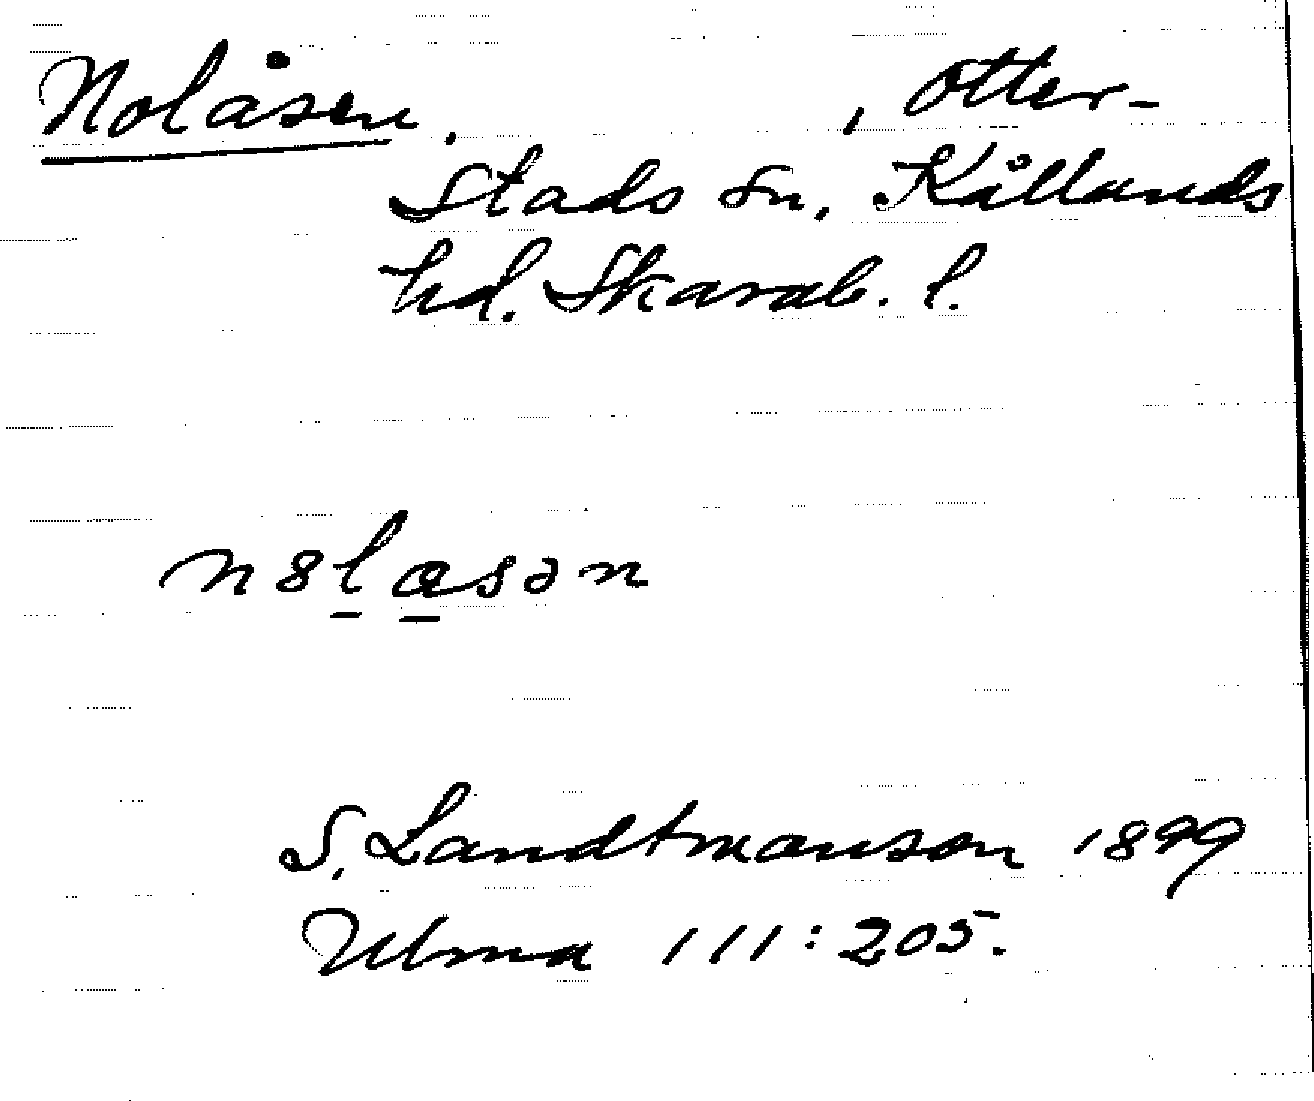 Nolåsen. , Otter-
stads sn, Kållands
hd. Skarab. l.
n8l̲a̲sən
S. Landtmanson 1899
Ulma 111:205.